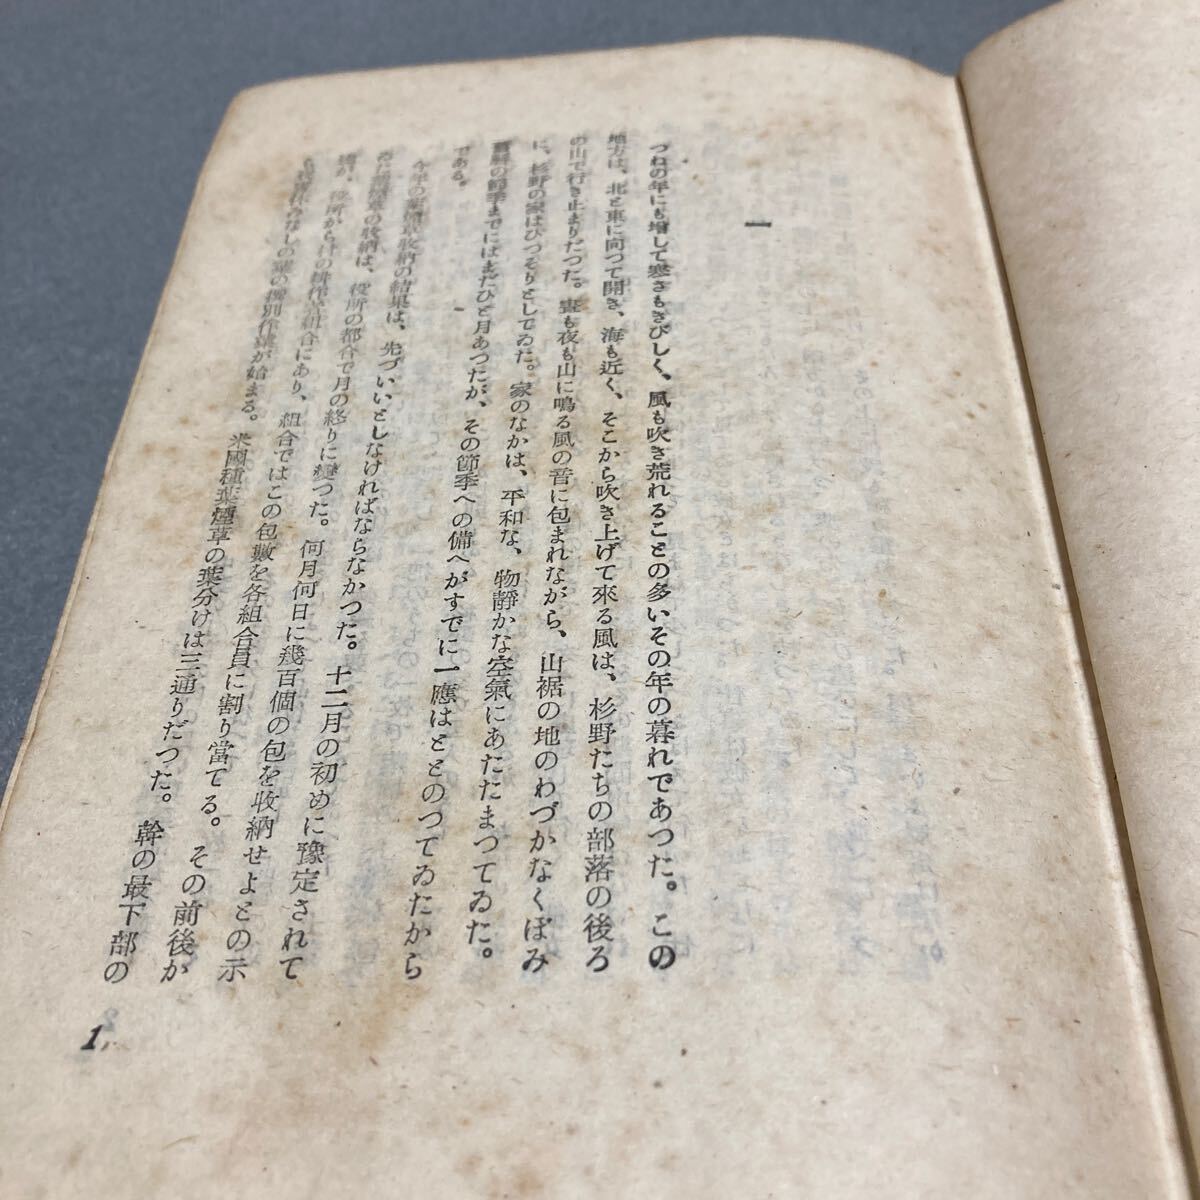 一
つねの年にも増して寒さもきびしく、風も吹き荒れることの多いその年の暮れであつた。この
地方は、北と東に向つて開き、海も近く、そこから吹き上げて來る風は、杉野たちの部落の後ろ
の山で行き止まりだつた。晝も夜も山に鳴る風の音に包まれながら、山裾の地のわづかなくぼみ
に、杉野の家はひつそりとしてゐた。家のなかは、平和な、物靜かな空氣にあたたまつてゐた。
舊曆の節季までにはまだひと月あつたが、その節季への備へがすでに一應はととのつてゐたから
である。
今年の葉煙草收納の結果は、先づいいとしなければならなかつた。十二月の初めに豫定されて
ゐた葉煙草の收納は、役所の都合で月の終りに變つた。何月何日に幾百個の包を收納せよとの示
達が、役所から村の耕作者組合にあり、組合ではこの包數を各組合員に割り當てる。その前後が
葉の撰別作業が始まる。米國種葉煙草の葉分けは三通りだつた。幹の最下部の
1